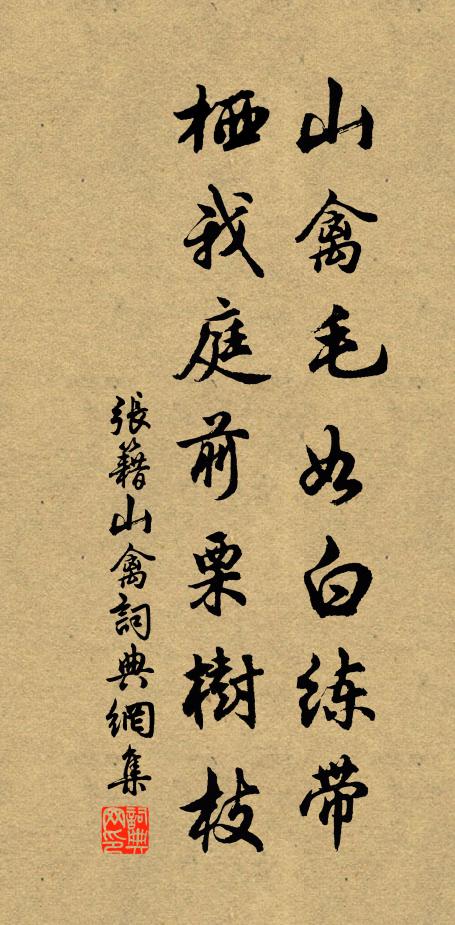 山禽毛如白练带
栖我庭前栗樹枝
張籍山禽詞典網集
詞典网印